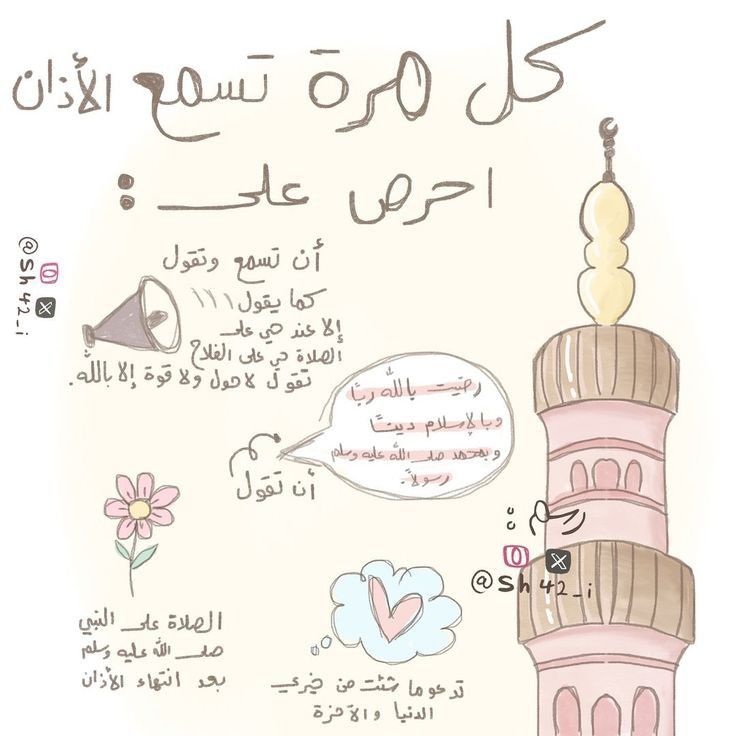 كل مرة تسمع الأذان
احرص على :
أن تسمع وتقول
كما يقول
إلا عند حي على
الصلاة حي على الفلاح
تقول لا حول ولا قوة إلا بالله.
@Sh42_i
رضيت بالله ربًا
وبالإسلام دينًا
وبمحمد صلى الله عليه وسلم
رسولًا.
أن تقول
رسم :
@Sh42_i
الصلاة على النبي
صلى الله عليه وسلم
بعد انتهاء الأذان
تدعو ما شئت من خيري
الدنيا والآخرة